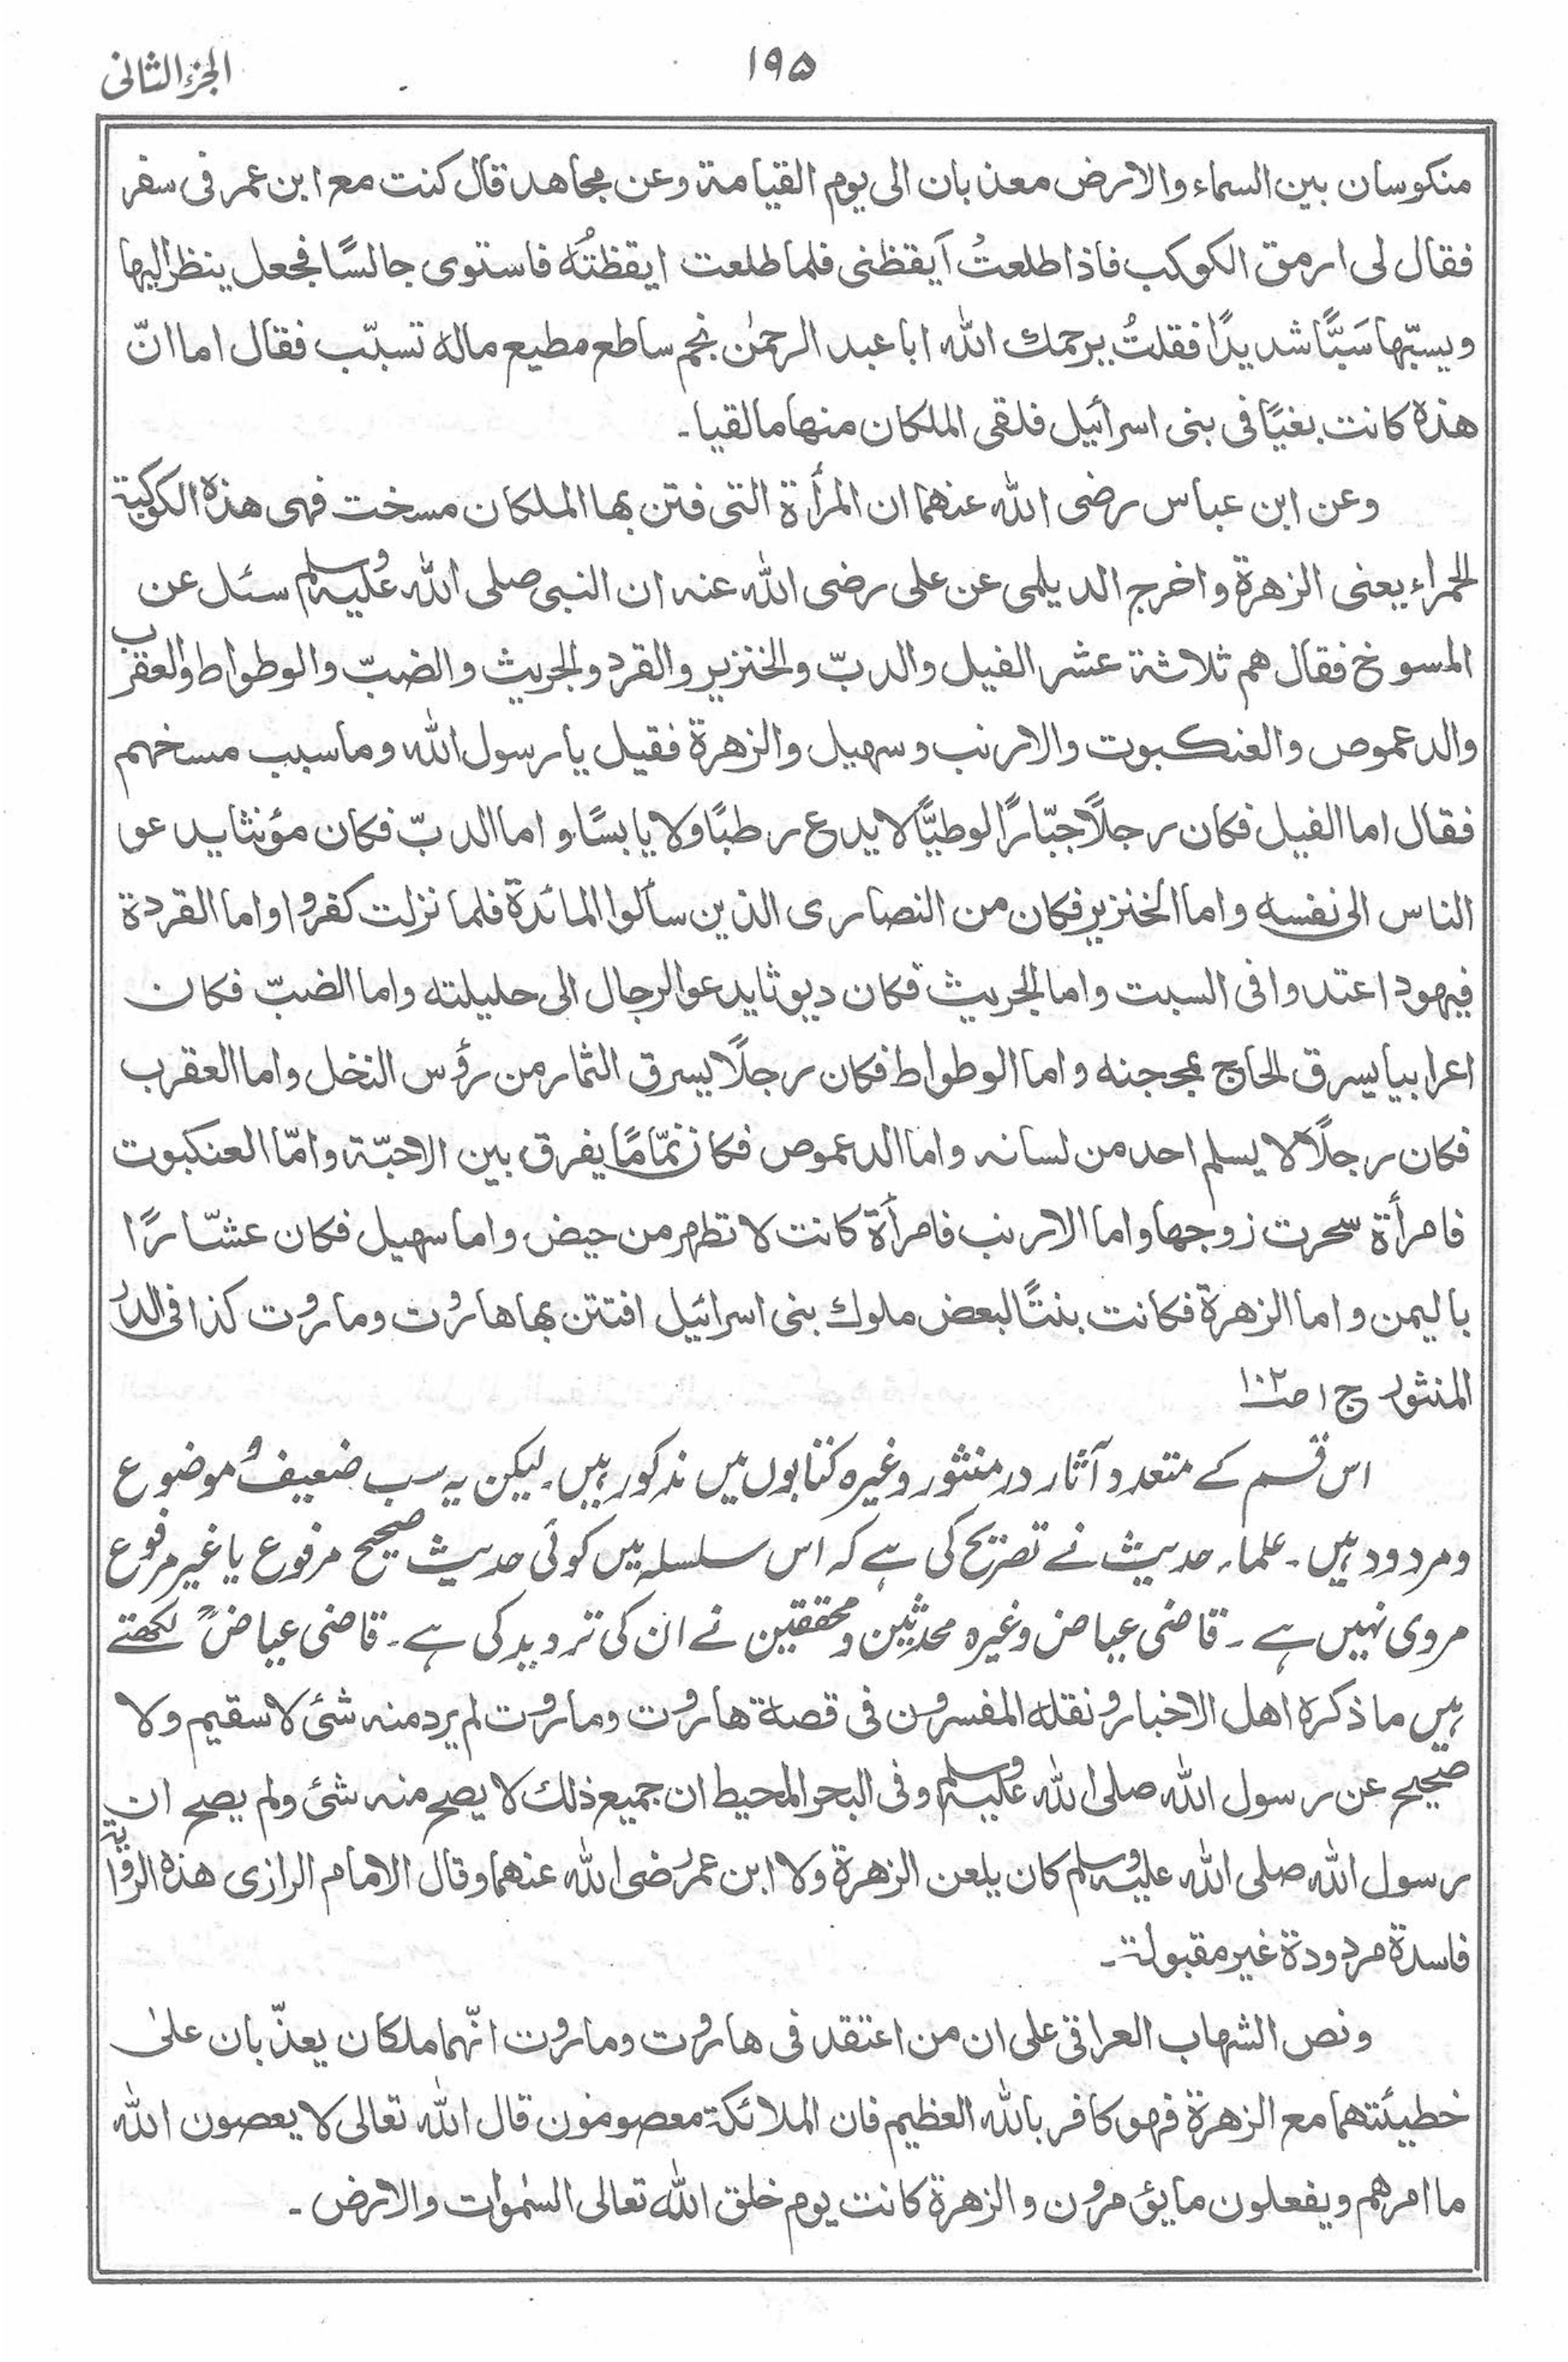 الجزء الثانی
۱۹۵
منکوسان بین السماء والارض معذبان الی یوم القیامة وعن مجاهد قال کنت مع ابن عمر فی سفر
فقال لی ارمق الکوکب فاذا طلعتُ أیقظنی فلما طلعت ایقظتُه فاستوی جالسًا فجعل ینظر الیها
ویسبّها سَبًّا شدیدًا فقلتُ یرحمك الله ابا عبد الرحمٰن نجم ساطع مطیع ماله تسبّب فقال اما انّ
هذه کانت بغیًا فی بنی اسرائیل فلقی الملکان منها ما لقیا۔
وعن ابن عباس رضی الله عنهما ان المرأة التی فتن بها الملکان مسخت فهی هذه الکوکبة
الحمراء یعنی الزهرة واخرج الدیلمی عن علی رضی الله عنه ان النبی صلی الله علیه وسلم سئل عن
المسوخ فقال هم ثلاثة عشر الفیل والدبّ والخنزیر والقرد والجریث والضبّ والوطواط والعقرب
والدعموص والعنکبوت والارنب وسهیل والزهرة فقیل یا رسول الله وما سبب مسخهم
فقال اما الفیل فکان رجلًا جبّارًا لوطیًّا لا یدع رطبًا ولا یابسًا و اما الدبّ فکان مؤنثا یدعو
الناس الی نفسه واما الخنزیر فکان من النصاری الذین سألوا المائدة فلما نزلت کفروا واما القردة
فیهود اعتدوا فی السبت واما الجریث فکان دیوثا یدعو الرجال الی حلیلته واما الضبّ فکان
اعرابیا یسرق الحاج بمحجنه واما الوطواط فکان رجلًا یسرق الثمار من رؤس النخل واما العقرب
فکان رجلًا لا یسلم احد من لسانه واما الدعموص فکان نمّامًا یفرق بین الاحبّة وامّا العنکبوت
فامرأة سحرت زوجها واما الارنب فامرأة کانت لا تطهر من حیض واما سهیل فکان عشّارًا
بالیمن واما الزهرة فکانت بنتًا لبعض ملوك بنی اسرائیل افتتن بها هاروت وماروت کذا فی الدر
المنثور ج۱ ص۱۰۲
اس قسم کے متعدد آثار در منثور وغیرہ کتابوں میں مذکور ہیں۔ لیکن یہ سب ضعیف و موضوع
ومردود ہیں۔ علماء حدیث نے تصریح کی ہے کہ اس سلسلہ میں کوئی حدیث صحیح مرفوع یا غیر مرفوع
مروی نہیں ہے۔ قاضی عیاض وغیرہ محدثین ومحققین نے ان کی تردید کی ہے۔ قاضی عیاضؒ لکھتے
ہیں ما ذکره اهل الاخبار ونقله المفسرون فی قصة هاروت وماروت لم یرد منه شئ لا سقیم ولا
صحیح عن رسول الله صلی الله علیه وسلم وفی البحر المحیط ان جمیع ذلك لا یصح منه شئ ولم یصح ان
رسول الله صلی الله علیه وسلم کان یلعن الزهرة ولا ابن عمر رضی الله عنهما وقال الامام الرازی هذه الروایة
فاسدة مردودة غیر مقبولة۔
ونص الشهاب العراقی علی ان من اعتقد فی هاروت وماروت انّهما ملکان یعذّبان علیٰ
خطیئتهما مع الزهرة فهو کافر بالله العظیم فان الملائکة معصومون قال الله تعالی لا یعصون الله
ما امرهم ویفعلون ما یؤمرون والزهرة کانت یوم خلق الله تعالی السمٰوات والارض۔